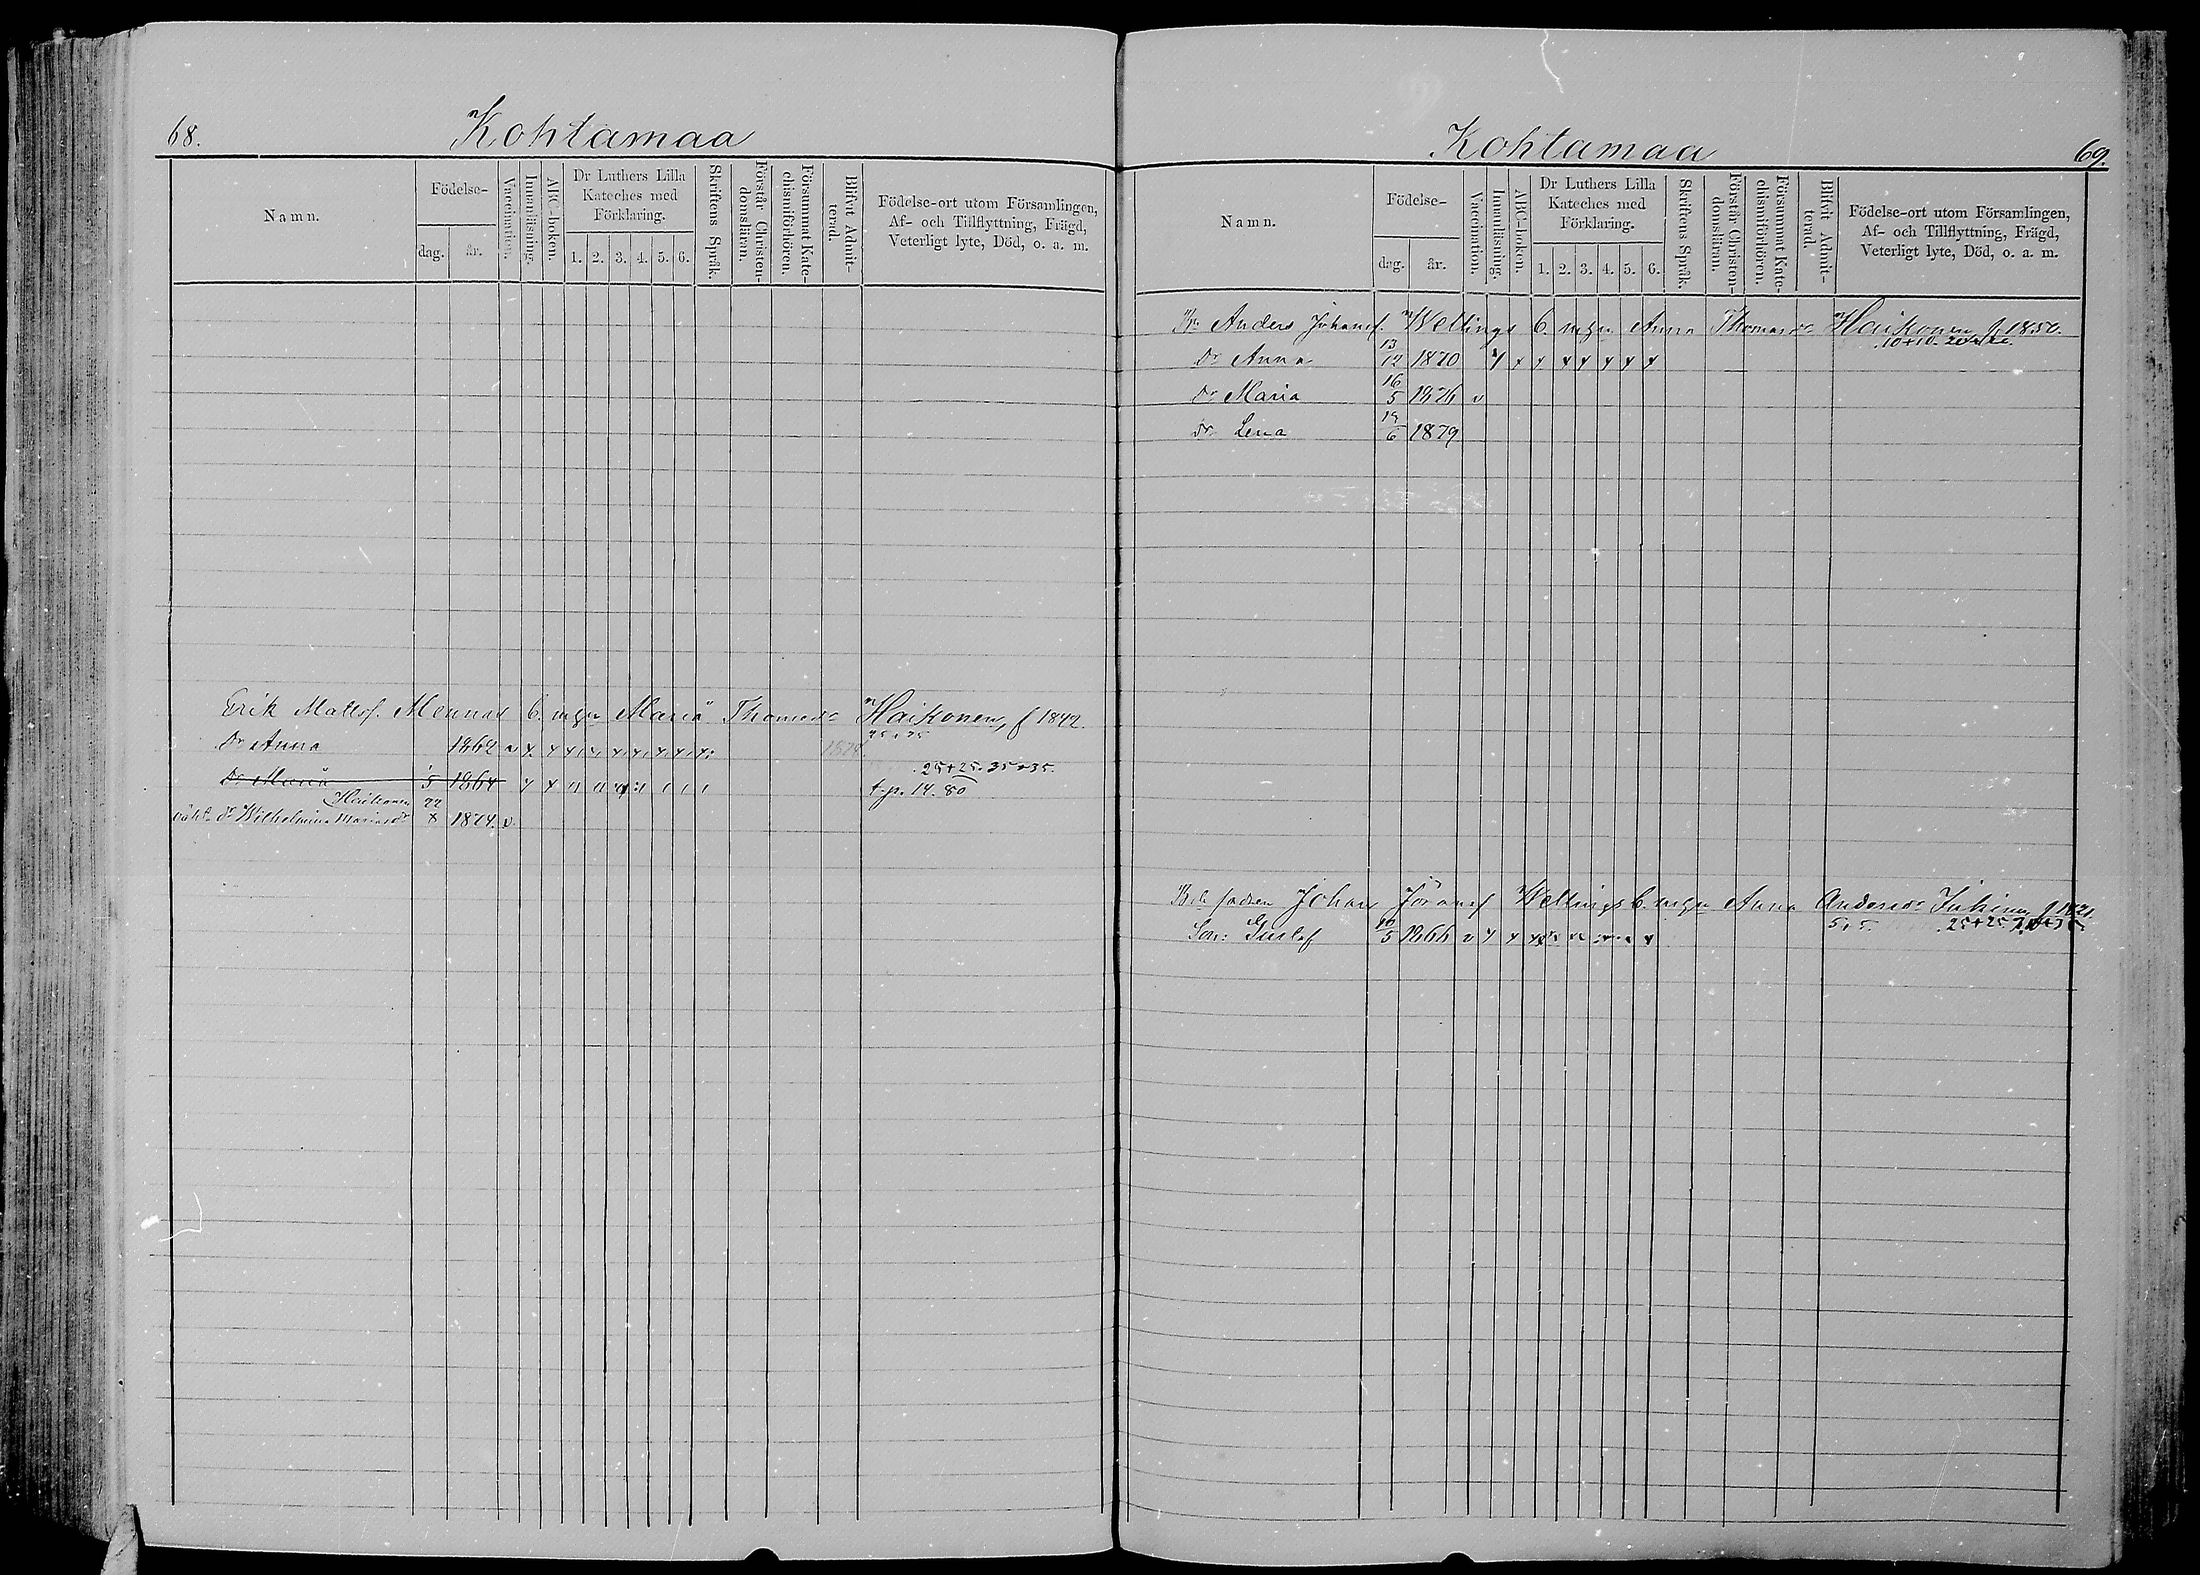 68.
Kohtamaa
Namn.
Födelse-
dag.
år.
Vaccination.
Innanläsning.
ABC-boken.
Dr Luthers Lilla
Kateches med
Förklaring.
1. 2. 3. 4. 5. 6.
Skriftens Språk.
Förstår Christen-
domsläran.
Försummat Kate-
chismiförhören.
Blifvit Admit-
terad.
Födelse-ort utom Församlingen,
Af- och Tillflyttning, Frägd,
Veterligt lyte, Död, o. a. m.
Erik Mattsf. Mennas Maria Thomasdr Haikonen, f 1842.
Dr Anna 1862
25+25. 35+35.
Dr Maria 5 1864 t. p. 14. 80
Haikonen
Dr Wilhelmina Mariasdr 22 1874. v.
Kohtamaa
69.
Namn.
Födelse-
dag.
år.
Vaccination.
Innanläsning.
ABC-boken.
Dr Luthers Lilla
Kateches med
Förklaring.
1. 2. 3. 4. 5. 6.
Skriftens Språk.
Förstår Christen-
domsläran.
Försummat Kate-
chismiförhören.
Blifvit Admit-
terad.
Födelse-ort utom Församlingen,
Af- och Tillflyttning, Frägd,
Veterligt lyte, Död, o. a. m.
Anders Johansf. Wellings Anna Thomasdr Haikonen f. 1850.
10+10.
Dr Anna 13/12 1870
Dr Maria 16/5 1876 v
Dr Lena 6 1879
Johan Wellings Anna Andersdr
5+5. 25+25.
Son: Gustaf 10/5 1866 v